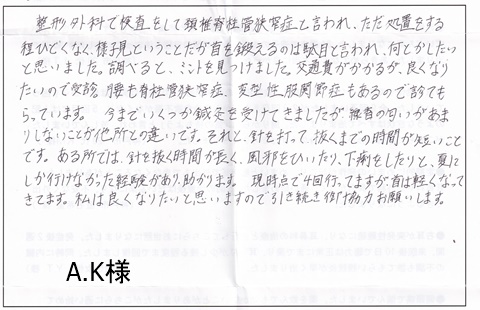 整形外科で検査をして頚椎脊柱管狭窄症と言われ、ただ処置をする
程ひどくなく、様子見ということだが首を鍛えるのは駄目と言われ、何とかしたい
と思いました。調べると、ミントを見つけました。交通費がかかるが、良くなり
たいので受診。腰も脊柱管狭窄症、変型性股関節症もあるので診ても
らっています。 今までいくつか鍼灸を受けてきましたが、線香の匂いがあま
りしないことが他所との違いです。それと、針を打って、抜くまでの時間が短いこと
です。ある所では、針を抜く時間が長く、風邪をひいたり、下痢をしたりと、夏に
しか行けなかった経験があり、助かります。 現時点で4回行ってますが、首は軽くなって
きてます。私は良くなりたいと思いますので引き続き御協力お願いします。
A.K様